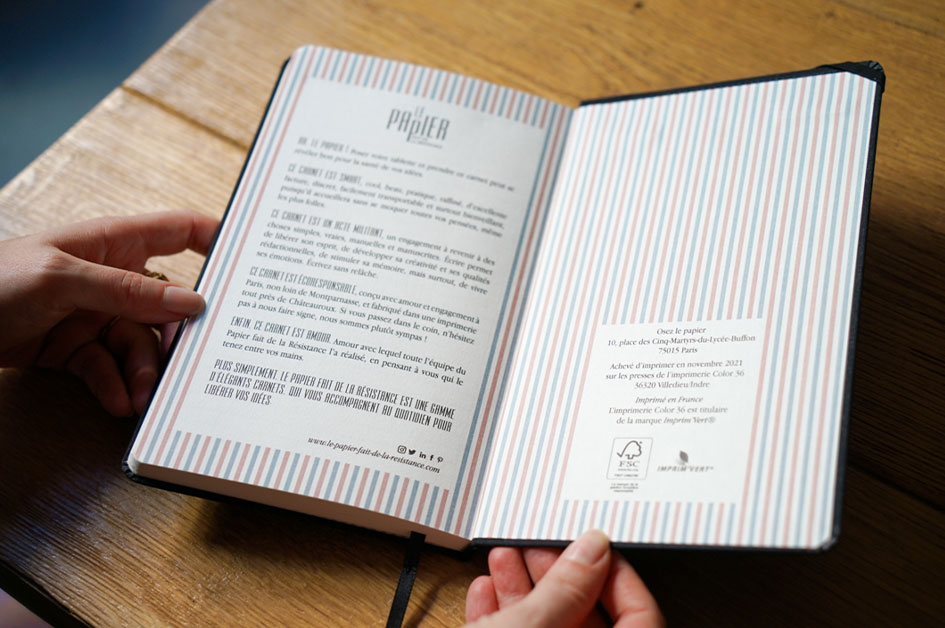 LE
PAPIER
AH, LE PAPIER ! Posez votre tablette et prendre ce carnet peut se
révéler bon pour la santé de vos idées.
CE CARNET EST SMART, cool, beau, pratique, raffiné, d'excellente
facture, discret, facilement transportable et surtout bienveillant,
puisqu'il accueillera sans se moquer toutes vos pensées, même
les plus folles.
CE CARNET EST UN ACTE MILITANT, un engagement à revenir à des
choses simples, vraies, manuelles et manuscrites. Écrire permet
de libérer son esprit, de développer sa créativité et ses qualités
rédactionnelles, de stimuler sa mémoire, mais surtout, de vivre
ses émotions. Écrivez sans relâche.
CE CARNET EST ÉCORESPONSABLE, conçu avec amour et engagement à
Paris, non loin de Montparnasse, et fabriqué dans une imprimerie
tout près de Châteauroux. Si vous passez dans le coin, n'hésitez
pas à nous faire signe, nous sommes plutôt sympas !
ENFIN, CE CARNET EST AMOUR. Amour avec lequel toute l'équipe du
Papier fait de la Résistance l'a réalisé, en pensant à vous qui le
tenez entre vos mains.
PLUS SIMPLEMENT, LE PAPIER FAIT DE LA RÉSISTANCE EST UNE GAMME
D'ÉLÉGANTS CARNETS, QUI VOUS ACCOMPAGNENT AU QUOTIDIEN POUR
LIBÉRER VOS IDÉES.
www.le-papier-fait-de-la-resistance.com
Osez le papier
10, place des Cinq-Martyrs-du-Lycée-Buffon
75015 Paris
Achevé d'imprimer en novembre 2021
sur les presses de l'imprimerie Color 36
36320 Villedieu/Indre
Imprimé en France
L'imprimerie Color 36 est titulaire
de la marque Imprim'Vert®
FSC
IMPRIM'VERT®